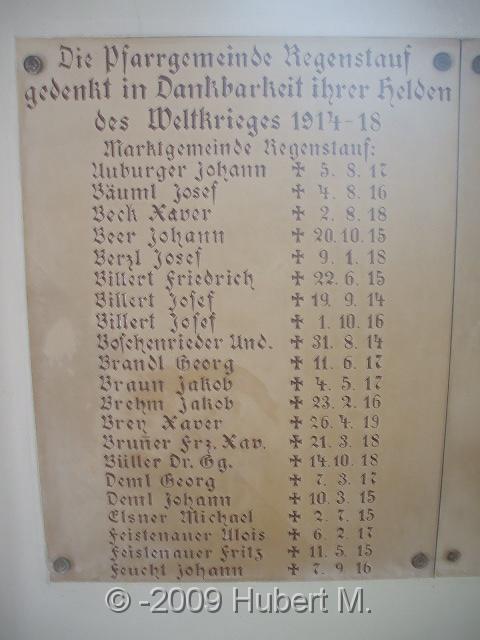 Die Pfarrgemeinde Regenstauf
gedenkt in Dankbarkeit ihrer Helden
des Weltkrieges 1914-18
Marktgemeinde Regenstauf:
Auburger Johann ✠ 5. 8. 17
Bäuml Josef ✠ 4. 8. 16
Beck Xaver ✠ 2. 8. 18
Beer Johann ✠ 20. 10. 15
Berzl Josef ✠ 9. 1. 18
Billert Friedrich ✠ 22. 6. 15
Billert Josef ✠ 19. 9. 14
Billert Josef ✠ 1. 10. 16
Boschenrieder And. ✠ 31. 8. 14
Brandl Georg ✠ 11. 6. 17
Braun Jakob ✠ 4. 5. 17
Brehm Jakob ✠ 23. 2. 16
Brey Xaver ✠ 26. 4. 19
Bruñer Frz. Xav. ✠ 21. 3. 18
Büller Dr. Gg. ✠ 14. 10. 18
Deml Georg ✠ 7. 3. 17
Deml Johann ✠ 10. 3. 15
Elsner Michael ✠ 2. 7. 15
Feistenauer Alois ✠ 6. 2. 17
Feistenauer Fritz ✠ 11. 5. 15
Feuchl Johann ✠ 7. 9. 16
© -2009 Hubert M.